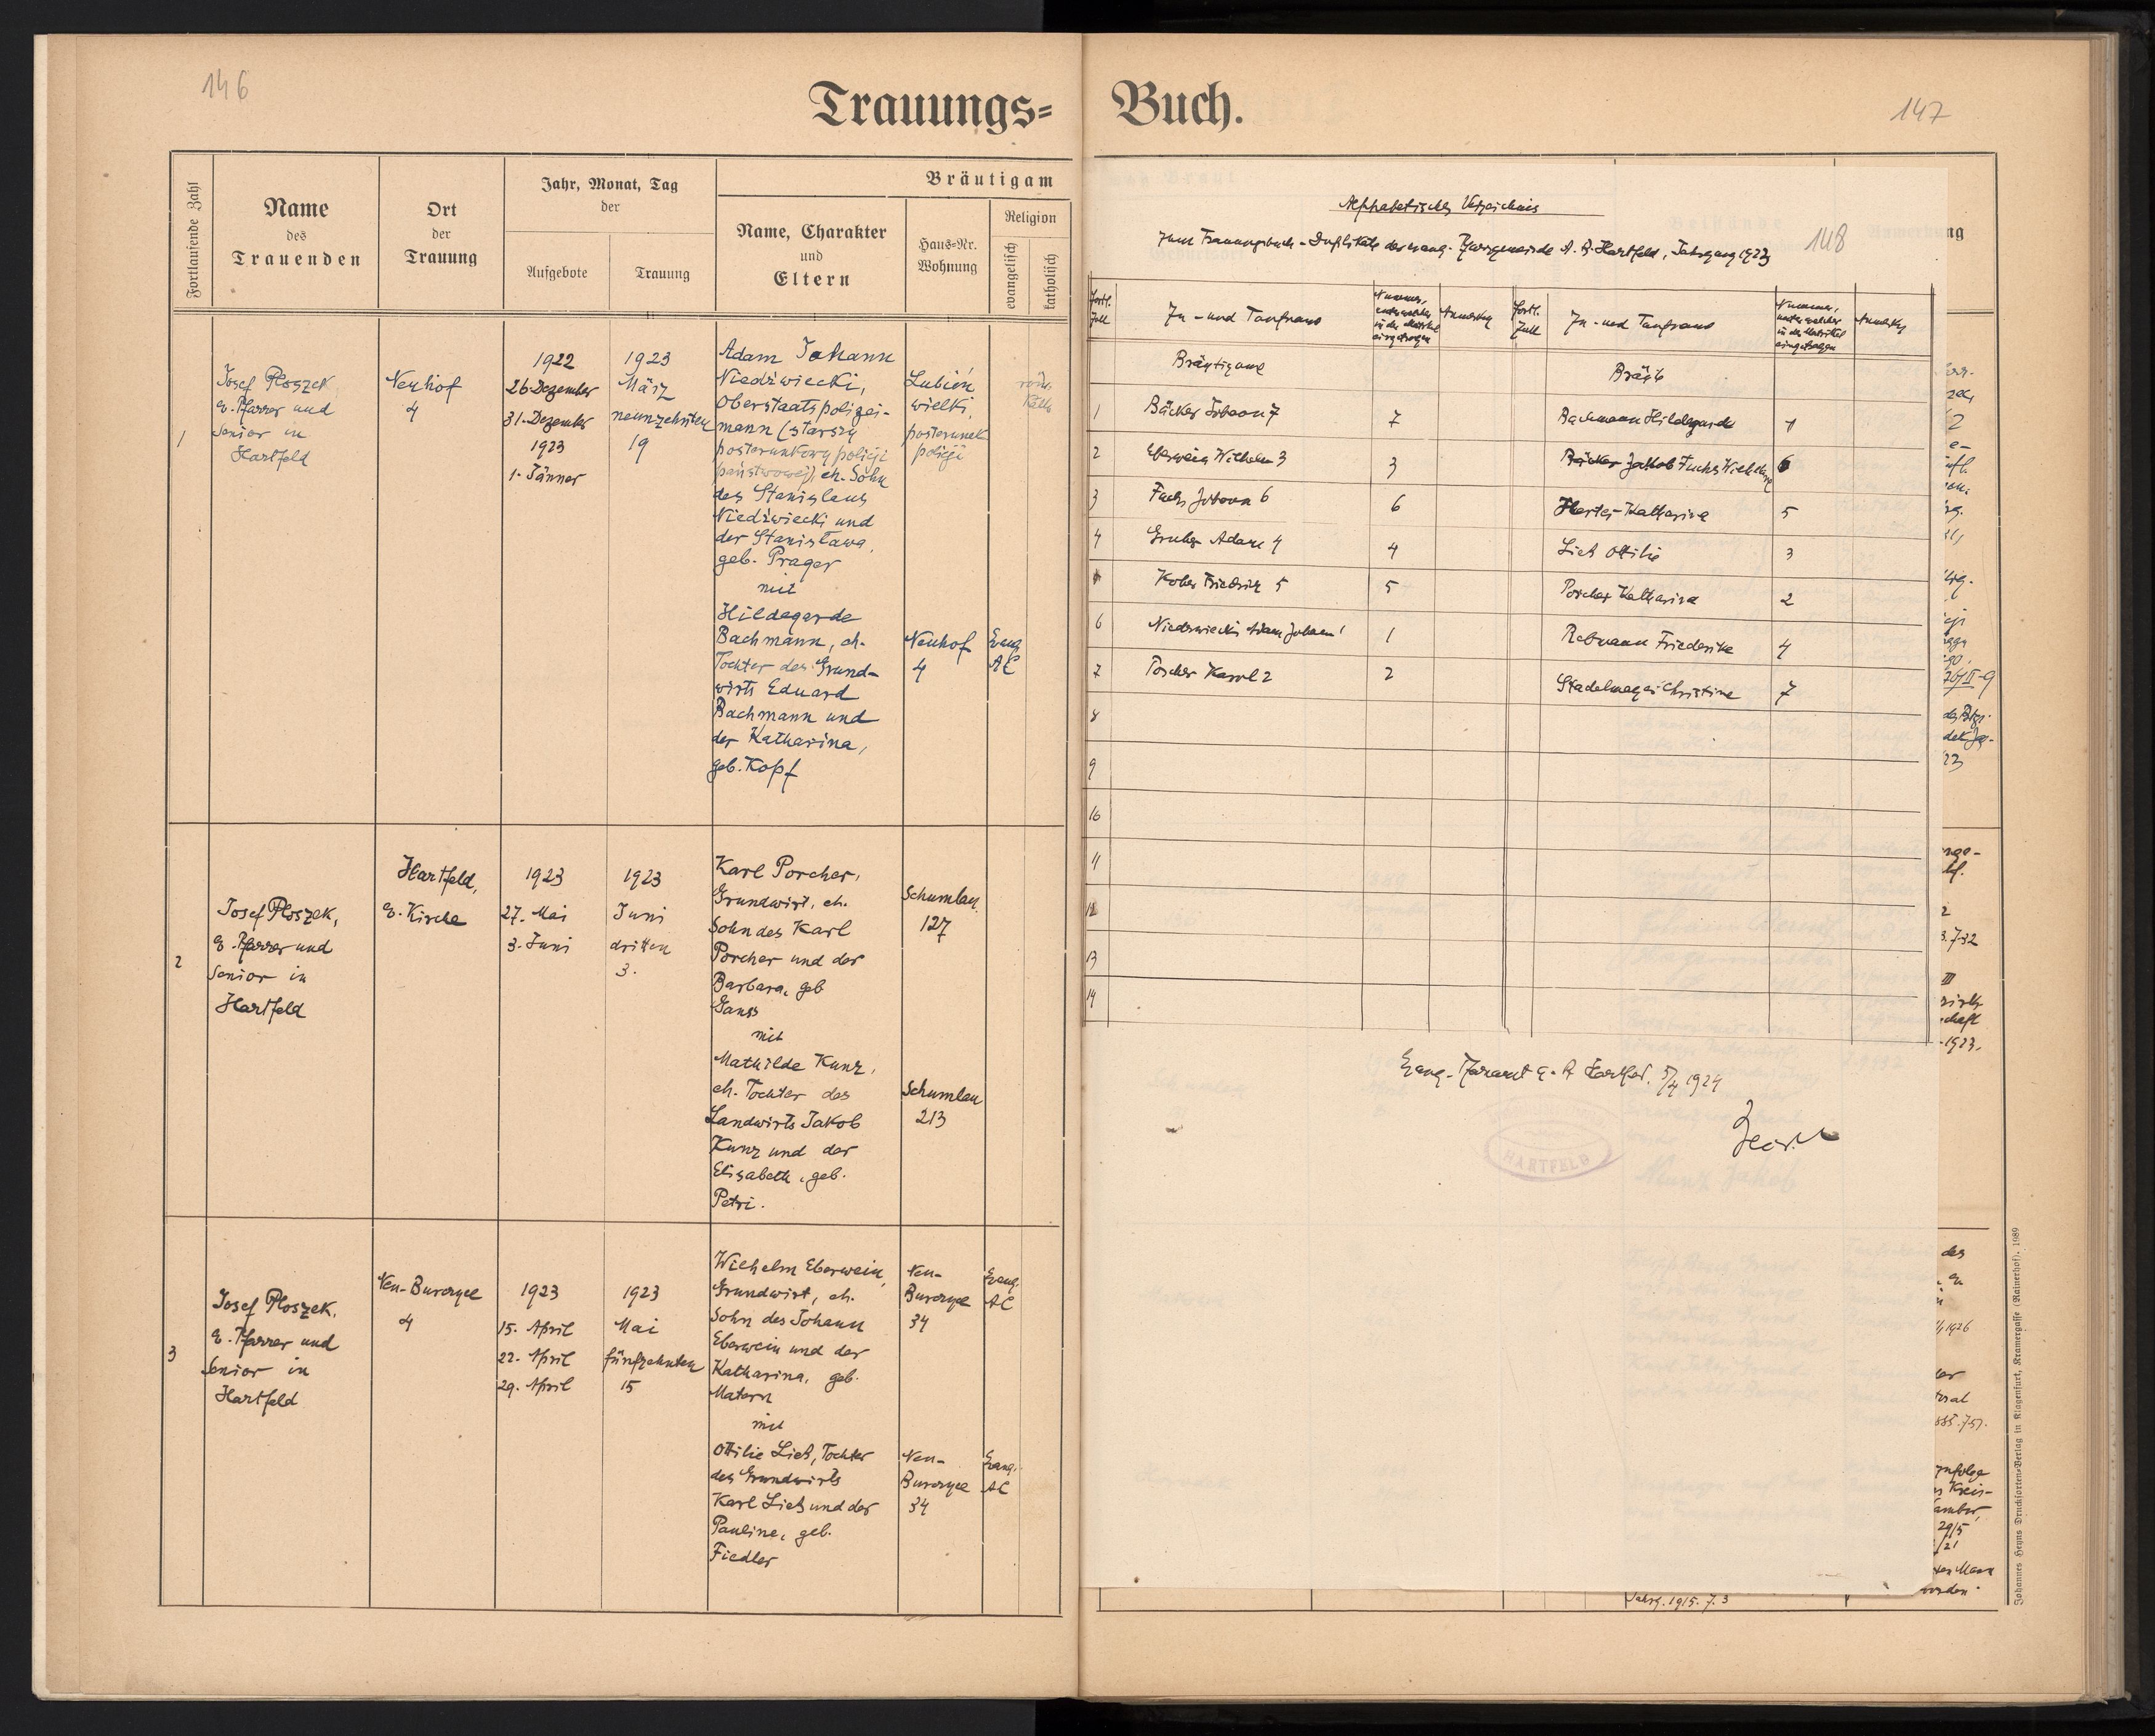 146
Trauungs=
Fortlaufende Zahl
Name
des
Trauenden
Ort
der
Trauung
Jahr, Monat, Tag
der
Aufgebote
Trauung
Bräutigam
Name, Charakter
und
Eltern
Haus=Nr.
Wohnung
Religion
evangelisch
katholisch
1
Josef Ploszek,
e. Pfarrer und
Senior in
Hartfeld
Neuhof
4
1922
26 Dezember
31. Dezember
1923
1. Jänner
1923
März
neunzehnten
19
Adam Johann
Niedźwiecki,
Oberstaatspolizei-
mann (starszy
posterunkowy policji
państwowej), eh. Sohn
des Stanislaus
Niedźwiecki und
der Stanisława,
geb. Prager
mit
Hildegarde
Bachmann, eh.
Tochter des Grund-
wirts Eduard
Bachmann und
der Katharina,
geb. Kopf
Lubień
wielki,
posterunek
policji
röm.
kath.
Neuhof
4
Evag
AC
2
Josef Ploszek,
e. Pfarrer und
Senior in
Hartfeld
Hartfeld,
e. Kirche
1923
27. Mai
3. Juni
1923
Juni
dritten
3.
Karl Porcher,
Grundwirt, eh.
Sohn des Karl
Porcher und der
Barbara, geb
Ganss
mit
Mathilde Kunz,
eh. Tochter des
Landwirts Jakob
Kunz und der
Elisabeth, geb.
Petri.
Schumlau
127
Schumlau
213
3
Josef Ploszek,
e. Pfarrer und
Senior in
Hartfeld
Neu-Burczyce
4
1923
15. April
22. April
29. April
1923
Mai
fünfzehnten
15
Wilhelm Eberwein,
Grundwirt, eh.
Sohn des Johann
Eberwein und der
Katharina, geb.
Matern
mit
Ottilie Lieb, Tochter
des Grundwirts
Karl Lieb und der
Pauline, geb.
Fiedler
Neu-
Burczyce
34
Evang.
AC
Neu-
Burczyce
34
Evang.
AC
Buch.
147
Alphabetisches Verzeichnis
zum Trauungsbuch-Duplikate der evang. Pfarrgemeinde A. B. Hartfeld, Jahrgang 1923
148
Fortl. Zall
Zu - und Taufname
Nummer, unter welcher in der Matrikel eingetragen
Anmerkg
Fortl. Zall
Zu - und Taufname
Nummer, unter welcher in der Matrikel eingetragen
Anmerkg
Bräutigame
Bräute
1 Bäcker Johann 7 7 Bachmann Hildegarde 1
2 Eberwein Wilhelm 3 3 Bäcker Jakob Fuchs 6
3 Fuchs Johann 6 6 Harter Katharina 5
4 Gruber Adam 4 4 Lieb Ottilie 3
Kober Friedrich 5 5 Porcher Katharina 2
6 Niedzwiecki Adam Johann 1 1 Rebmann Friederike 4
7 Porcher Karol 2 2 Stadelmayer Christine 7
8
9
10
11
12
13
14
Evang. Pfarramt A. B. Hartfeld, 5/4 1924
HARTFELD
Jahrg. 1915. 7. 3
Johannes Heyns Drucksorten=Verlag in Klagenfurt, Kramergasse (Rainerhof). 1089